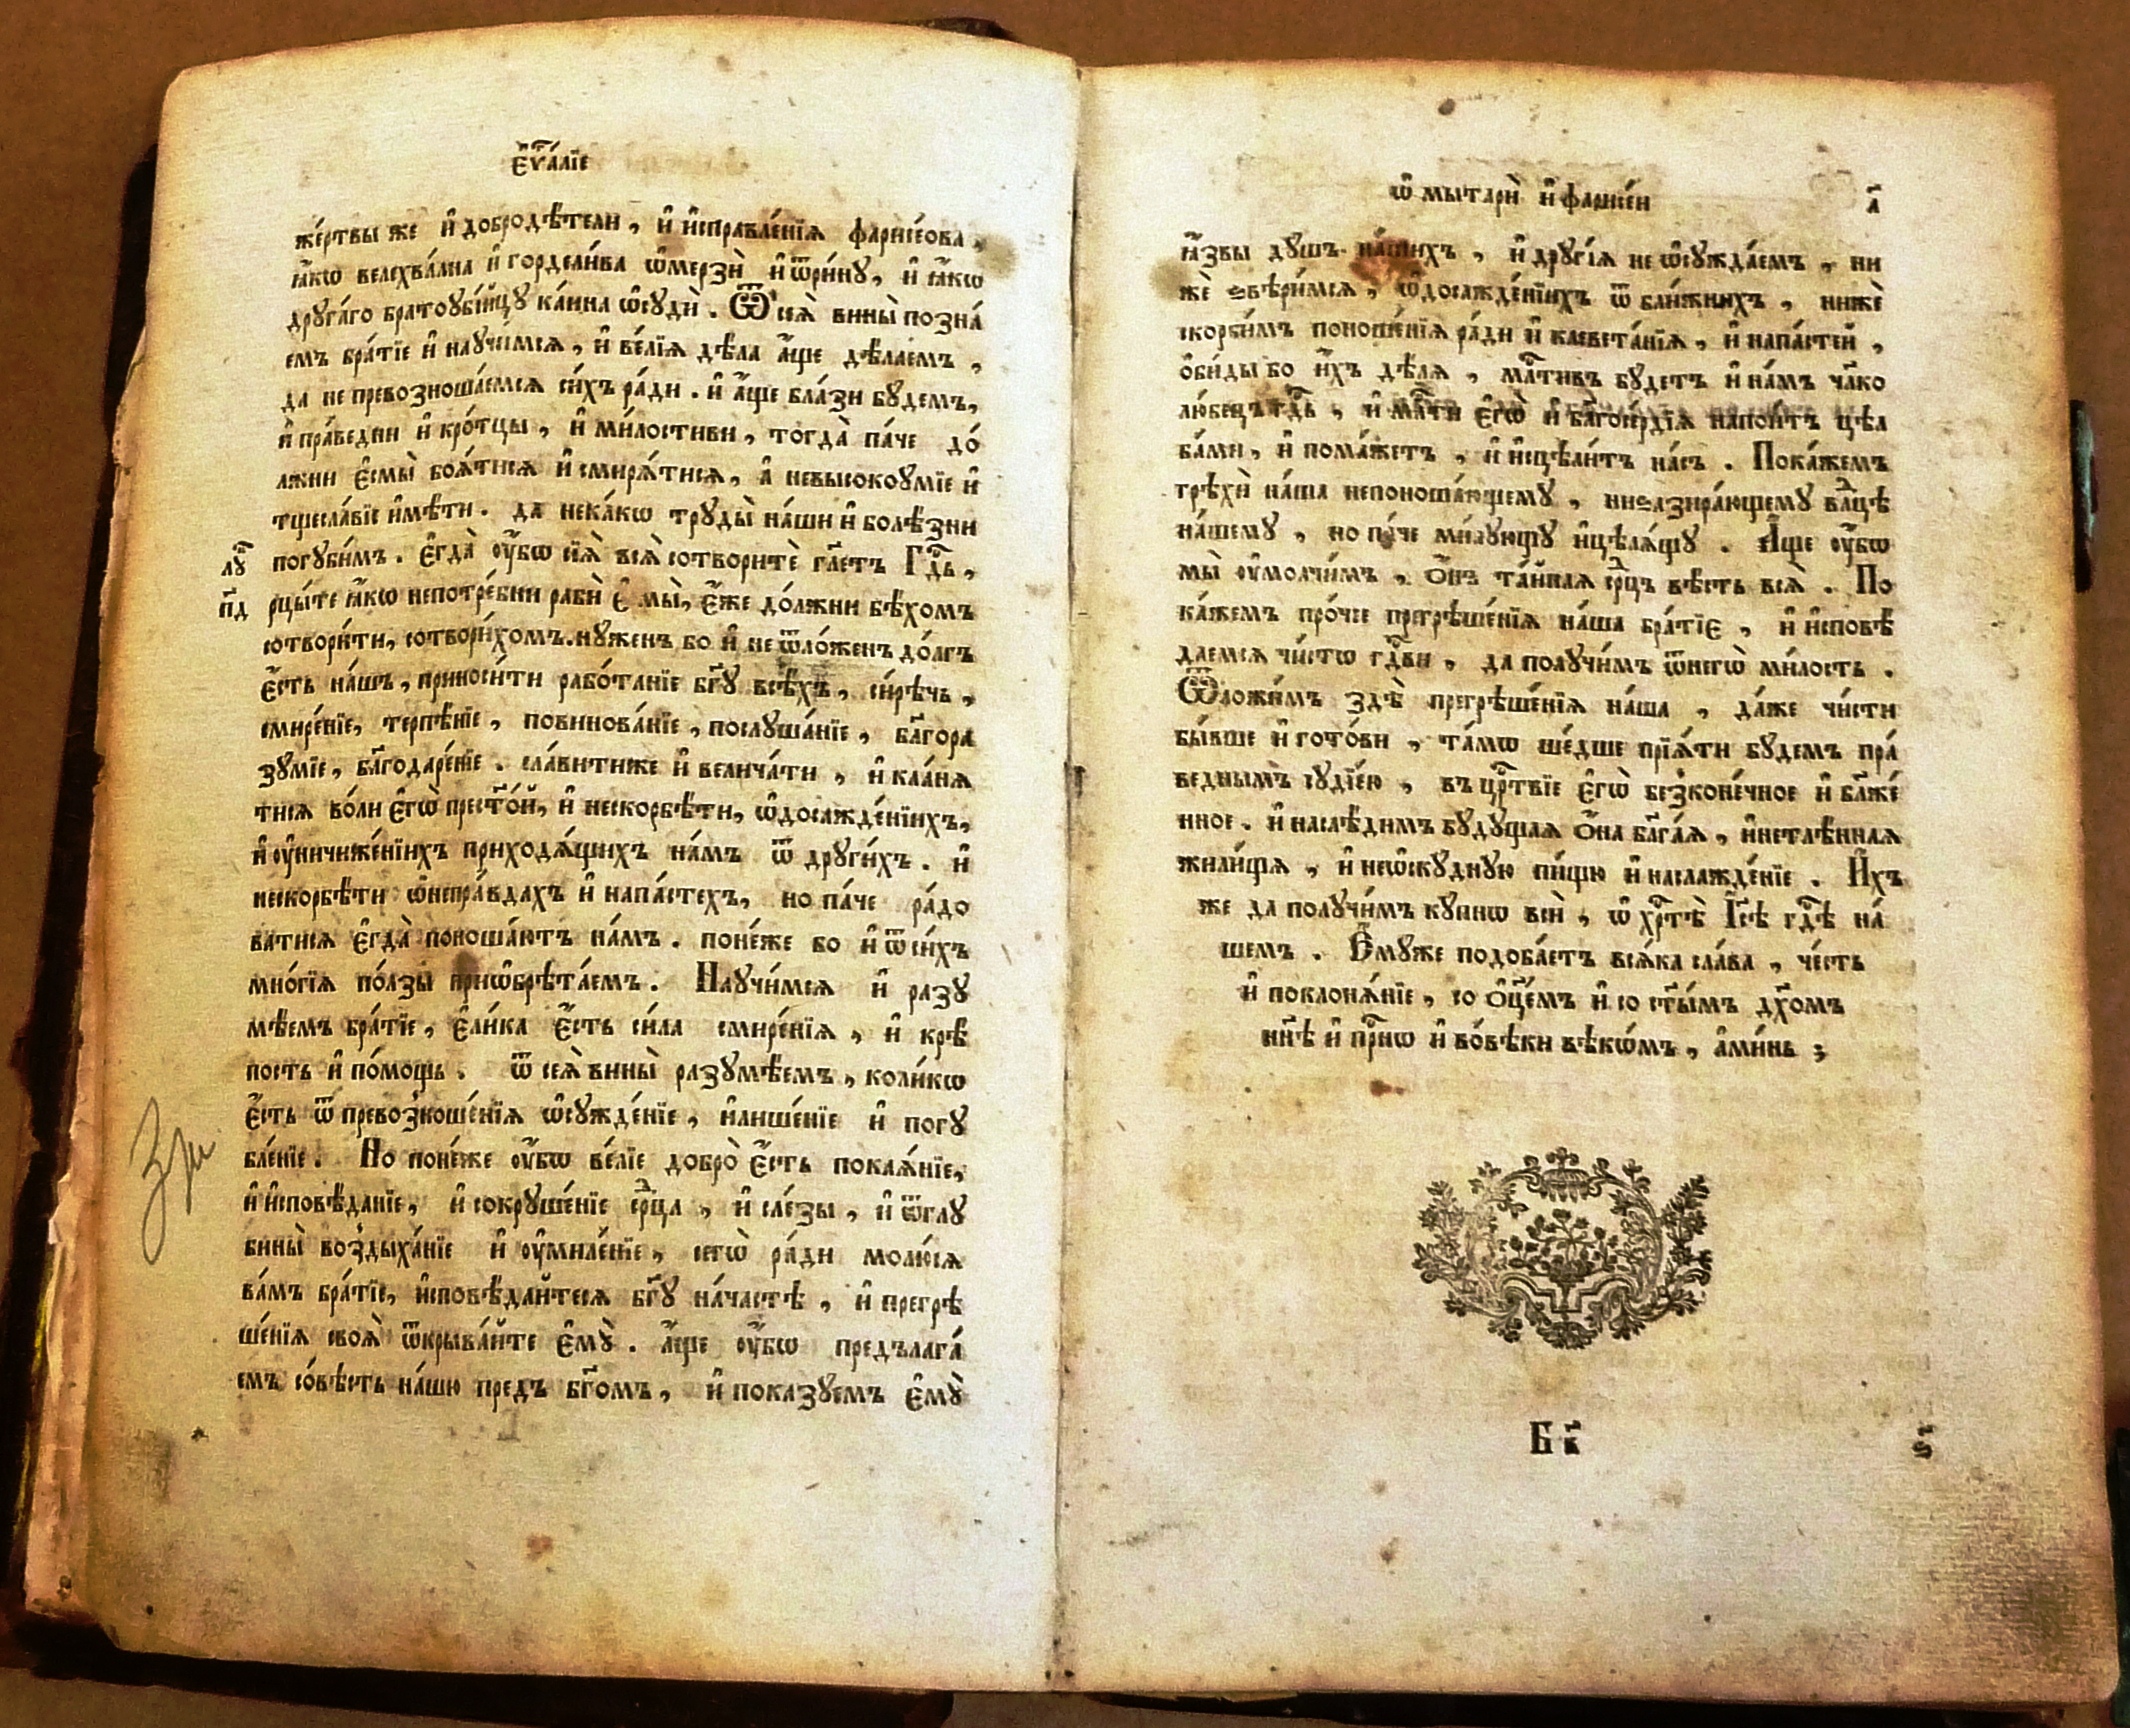 Є҆ѵⷢ҇а́лїе
же́ртвы же и҆ добродѣ́тели , и҆ и҆справле́нїѧ фарисе́ова ,
ꙗ҆́кѡ велехва́лна и҆ горделиı́ва ѡ҆мерзѝ и҆ ѿри́ну , и҆ ꙗ҆́кѡ
друга́го братоубі́йцу ка́ина ѡ҆суди̇̀ . Ѿ сеѧ̀ вины̀ позна́
емъ бра́тїе и҆ научи́мсѧ , и҆ ве́лїѧ дѣ́ла а҆́ще дѣ́лаемъ ,
да не превозноша́емсѧ си́хъ ра́ди . и҆ а҆́ще бла́зи бу́демъ ,
и҆ пра́ведни и҆ кро́тцы , и҆ ми́лостиви , тогда̀ па́че до́
лжни є҆смы̀ боѧ́тисѧ и҆ смирѧ́тисѧ , а҆ невысокоу́мїе и҆
тщесла́вїе и҆мѣ́ти . да нека́кѡ труды̀ на́ши и҆ болѣ́зни
погуби́мъ . Є҆гда̀ ᲂу҆́бѡ сїѧ̀ всѧ̀ сотворитѐ гл҃етъ Гдⷭ҇ь ,
лꙋⷦ҇
п҃д
рцы́те ꙗ҆́кѡ непотре́бни рабѝ є҆ мы̀ , є҆́же до́лжни бѣ́хомъ
сотвори́ти , сотвори́хомъ . ну́женъ бо и҆ не ѿло́женъ до́лгъ
є҆́сть на́шъ , приноси́ти рабо́танїе бг҃у всѣ́хъ , си́рѣчь ,
смире́нїе , терпѣ́нїе , повинова́нїе , послуша́нїе , бл҃гора
зу́мїе , бл҃годаре́нїе . сла́витиже и҆ велича́ти , и҆ кла́нѧ
тисѧ во́ли є҆гѡ̀ прест҃о́й , и҆ нескорбѣ́ти , ѡ҆досажде́нїихъ ,
и҆ ᲂу҆ничиже́нїихъ приходѧ́щихъ на́мъ ѿ други́хъ . и҆
нескорбѣ́ти ѡ҆непра́вдахъ и҆ напа́стехъ , но па́че ра́до
ватисѧ є҆гда̀ поноша́ютъ на́мъ . поне́же бо и҆ ѿ си́хъ
мно́гїѧ по́лзы приѡбрѣта́емъ . Научи́мсѧ и҆ разу
мѣ́емъ бра́тїе , є҆ли́ка є҆́сть си́ла смире́нїѧ , и҆ крѣ́
пость и҆ по́мощь . ѿ сеѧ̀ вины̀ разумѣ́емъ , коли́кѡ
є҆́сть ѿ превозноше́нїѧ ѡ҆сужде́нїе , и҆лише́нїе и҆ погу
бле́нїе . Но поне́же ᲂу҆́бѡ ве́лїе добро̀ є҆́сть покаѧ́нїе ,
и҆ и҆сповѣ́данїе , и҆ сокруше́нїе срⷣца , и҆ сле́зы , и҆ ѿглу
Зри
бины̀ воздыха́нїе и҆ ᲂу҆миле́нїе , сегѡ̀ ра́ди молю́сѧ
ва́мъ бра́тїе , и҆сповѣ́дайтесѧ бг҃у на́частѣ , и҆ прегрѣ
ше́нїѧ своѧ̀ ѿкрыва́йте є҆мꙋ̀ . а҆́ще ᲂу҆́бѡ предълага́
емъ со́вѣсть на́шю предъ бг҃омъ , и҆ показу́емъ є҆мꙋ̀
ѡ҆ мытарѝ и҆ фарисе́и а҃
ꙗ҆́звы ду́шъ на́шихъ , и҆ други́ѧ не ѡ҆сужда́емъ , ни
жѐ ѕвѣри́мсѧ , ѡ҆досажде́нїихъ ѿ бли́жнихъ , нижѐ
скорби́мъ поноше́нїѧ ра́ди и҆ клевета́нїѧ , и҆ напа́стей ,
ѻ҆би́ды бо и҆́хъ дѣ́лѧ , млⷭ҇тивъ бу́детъ и҆ на́мъ чл҃ко
лю́бецъ гдⷭ҇ь , и҆ млⷭ҇ти є҆гѡ̀ и҆ бл҃госе́рдїѧ напои́тъ цѣл
ба́ми , и҆ пома́жетъ , и҆ и҆сцѣли́тъ на́съ . Пока́жемъ
грѣхѝ на́ша непоноша́ющему , ниѕазира́ющему влⷣцѣ
на́шему , но па́че ми́лующу и҆цѣлѧ́щу . А҆́ще ᲂу҆́бѡ
мы̀ ᲂу҆молчи́мъ , Ѻ҆́нъ та́йнаѧ срⷣцъ вѣ́сть всѧ̀ . По
ка́жемъ про́чее прегрѣше́нїѧ на́ша бра́тїе , и҆ и҆сповѣ́
даемсѧ чи́стѡ гдⷭ҇ви , да получи́мъ ѿнегѡ̀ ми́лость .
Ѿложи́мъ здѣ̀ прегрѣше́нїѧ на́ша , да́же чи́сти
бы́вше и҆ гото́ви , та́мѡ ше́дше прїѧ́ти бу́демъ пра́
веднымъ судїе́ю , въ црⷭ҇твїе є҆гѡ̀ безконе́чное и҆ бл҃же́
нное . и҆ наслѣ́димъ бу́дущаѧ ѻ҆́на бл҃га́ѧ , и҆нетлѣ́ннаѧ
жили́щѧ , и҆ неѡ҆ску́дную пи́щю и҆ наслажде́нїе . И҆́хъ
же да получи́мъ ку́пнѡ всѝ , ѡ҆ хрⷭ҇тѣ̀ І҆с҃ѣ гдⷭ҇ѣ на́
шемъ . Є҆му́же подоба́етъ всѧ́ка сла́ва , че́сть
и҆ поклонѧ́нїе , со ѻ҆ц҃е́мъ и҆ со ст҃ы́мъ дх҃омъ
нн҃ѣ и҆ прⷭ҇нѡ и҆ во́вѣки вѣкѡ́мъ , а҆ми́нь ;
Б к҃ ѕ҃